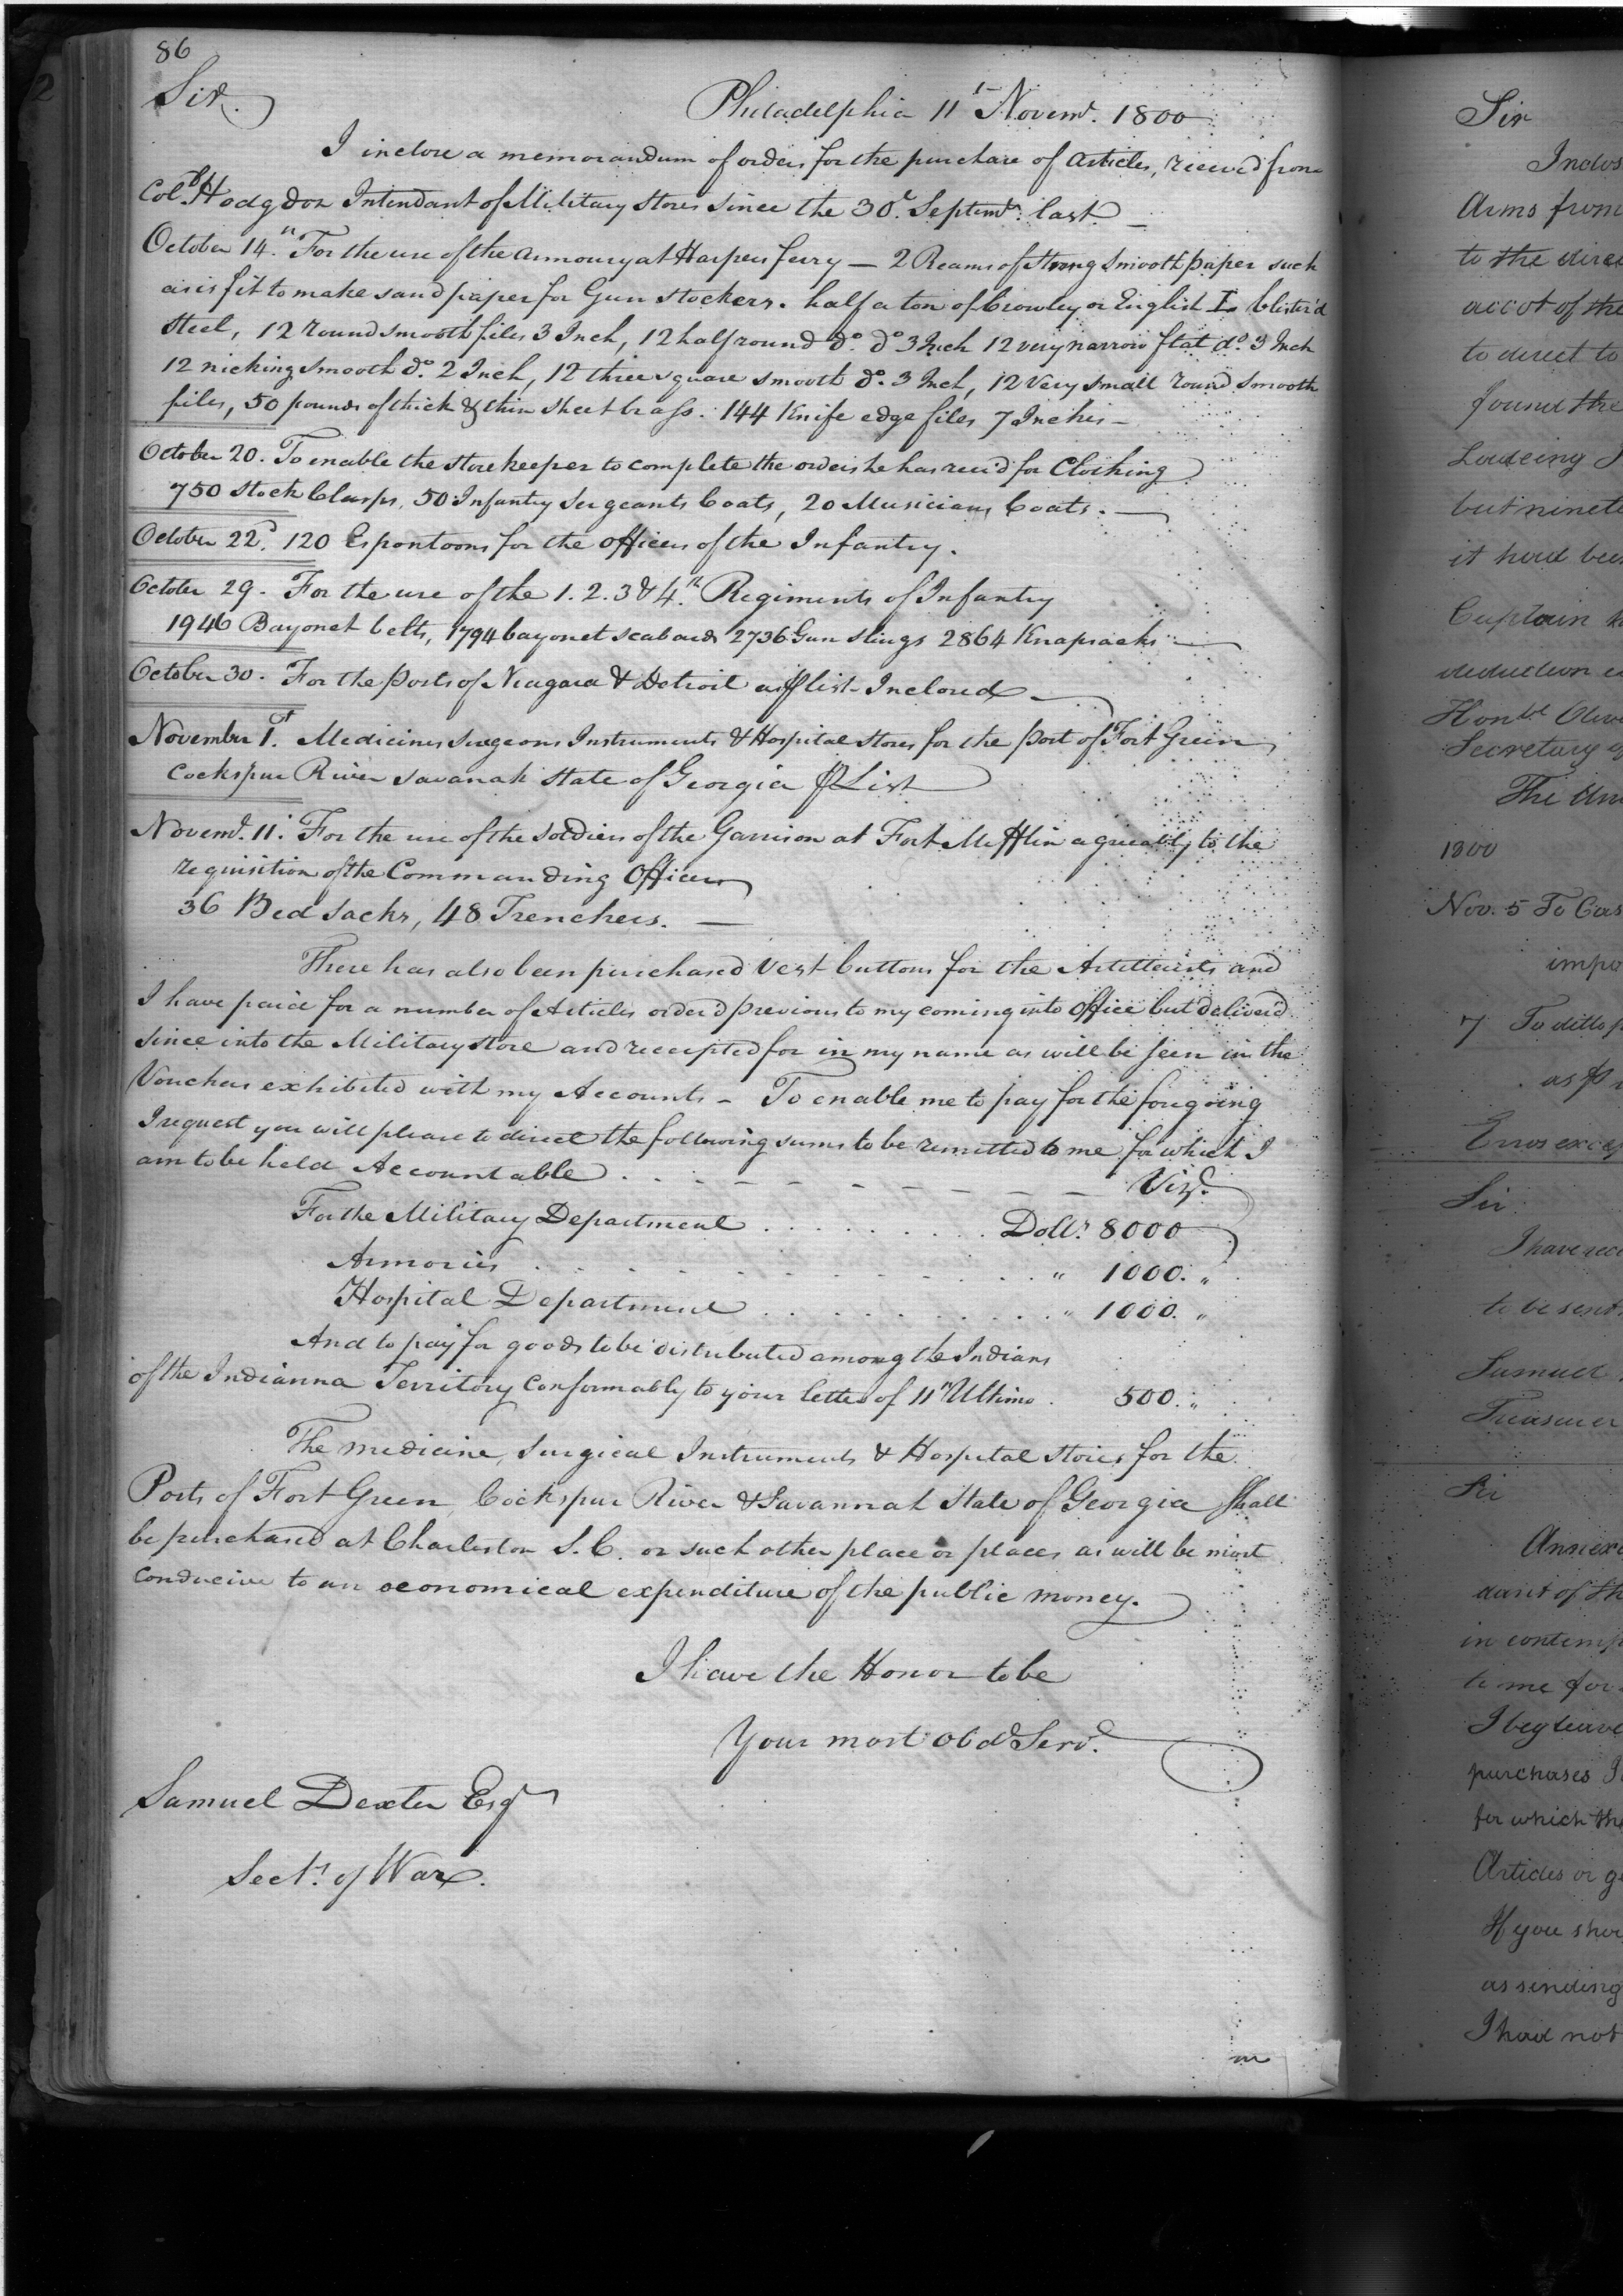 86
Sir.
Philadelphia 11th Novemr. 1800
I inclose a memorandum of orders for the purchase of Articles, receiv'd from
Coll. Hodgdon Intendant of Military Stores since the 30th. Septemr. last —
October 14th. For the use of the Armoury at Harpers ferry — 2 Reams of Strong Smooth paper such
as is fit to make sand paper for Gun Stockers. half a ton of Crowley or English L blister'd
Steel, 12 round smooth files 3 Inch, 12 half round do. do 3 Inch 12 very narrow flat do. 3 Inch
12 nicking smooth do. 2 Inch, 12 three square smooth do. 3 Inch, 12 Very small round smooth
files, 50 pounds of thick & thin sheet brass. 144 Knife edge files 7 Inches —
October 20. To enable the Storekeeper to complete the orders he has rec'd for Clothing
750 Stock Clasps, 50 Infantry Sergeants Coats, 20 Musicians Coats. —
October 22d. 120 Espontoons for the officers of the Infantry.
October 29. For the use of the 1. 2. 3 & 4.th Regiments of Infantry
1946 Bayonet belts, 1794 bayonet scabards 2736 Gun Slings 2864 Knapsacks —
October 30. For the Posts of Niagara & Detroit as ⅌ list Inclosed —
November 1st. Medicines Surgeons Instruments & Hospital Stores for the Post of Fort Green
Cockspur River Savanah State of Georgia ⅌ List
Novemr. 11. For the use of the Soldiers of the Garrison at Fort Mifflin agreeably to the
requisition of the Commanding Officer
36 Bed Sacks, 48 Trenchers. —
There has also been purchased Vest buttons for the Artillerists and
I have paid for a number of Articles order'd previous to my coming into Office but deliver'd
since into the Military Store and receipted for in my name as will be seen in the
Vouchers exhibited with my Accounts — To enable me to pay for the foregoing
I request you will please to direct the following sums to be remitted to me for which I
am to be held Accountable . . . Vizt.
For the Military Department . . . Dolls. 8000
Armories . . . " 1000. "
Hospital Department . . . " 1000. "
And to pay for goods to be distributed among the Indians
of the Indianna Territory conformably to your letter of 11th Ultimo . 500. "
The medicine, Surgical Instruments & Hospital Stores for the
Posts of Fort Green Cockspur River & Savannah State of Georgia shall
be purchased at Charleston S. C. or such other place or places as will be most
conducive to an oeconomical expenditure of the public money.
I have the Honor to be
Your most Obd Servt.
Samuel Dexter Esqr
Secty. of War.
Sir
Inclos
Arms from
to the direc
accot of the
to direct to
found the
but ninete
it had bee
Captain
deduction
Honbl Olive
Secretary of
The Un
1800
Nov. 5 To Cas
impo
7 To ditto
as ⅌
Errors excep
Sir
I have rece
to be sent
Samuel
Treasurer
Sir
Annex
dant of th
in contemp
to me for
I beg leave
purchases I
for which the
Articles or g
If you shou
as sending
I had not